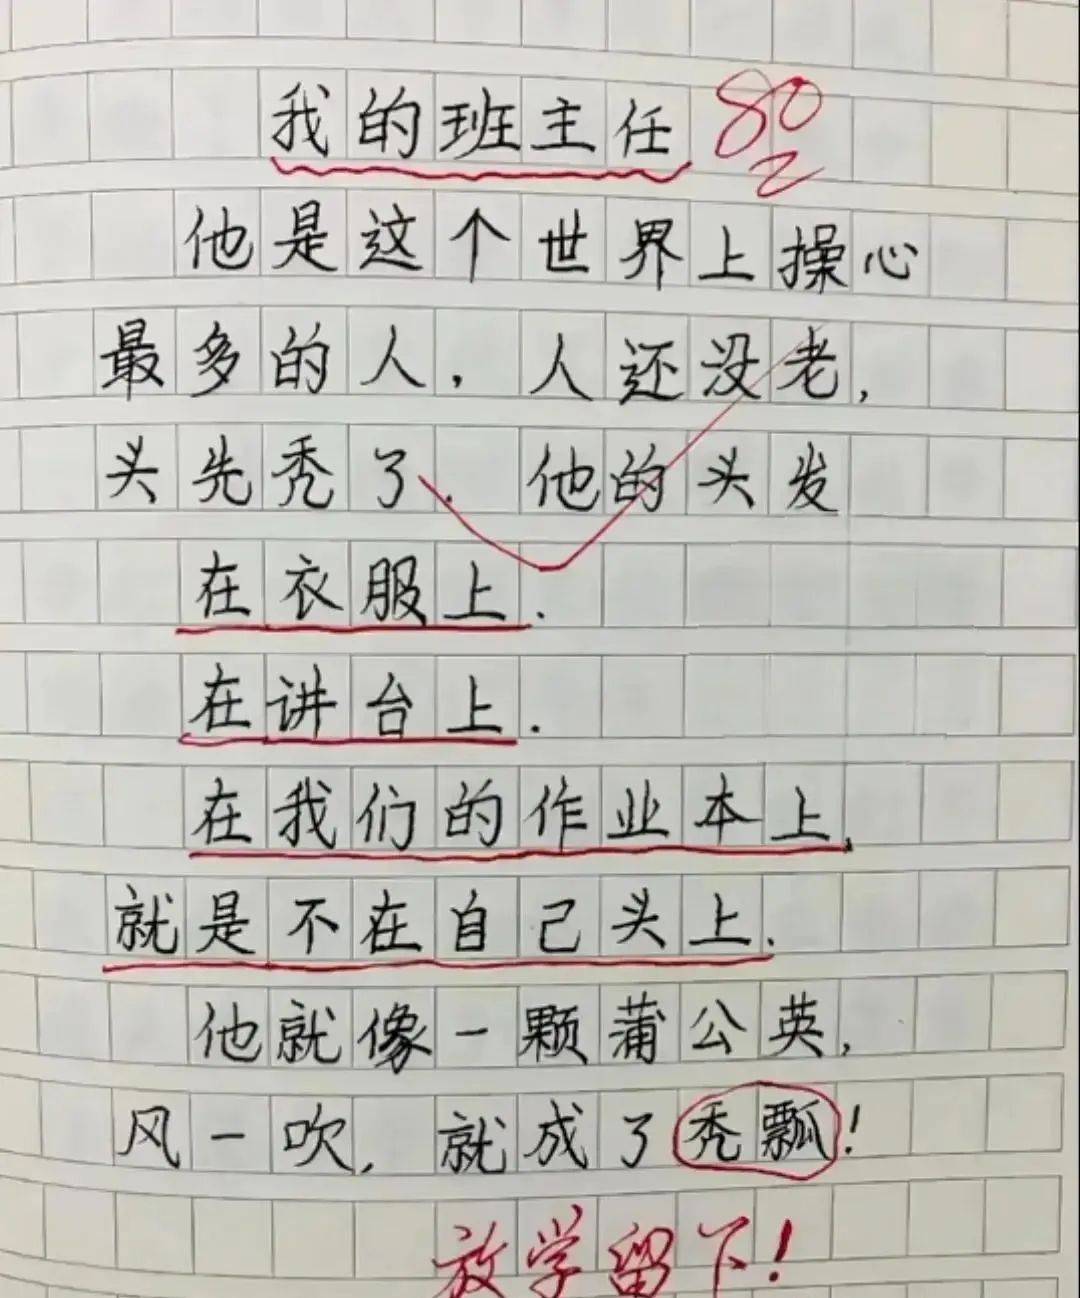 我的班主任 80
他是这个世界上操心
最多的人，人还没老，
头先秃了．他的头发
在衣服上．
在讲台上．
在我们的作业本上．
就是不在自己头上．
他就像一颗蒲公英，
风一吹，就成了秃瓢！
放学留下！